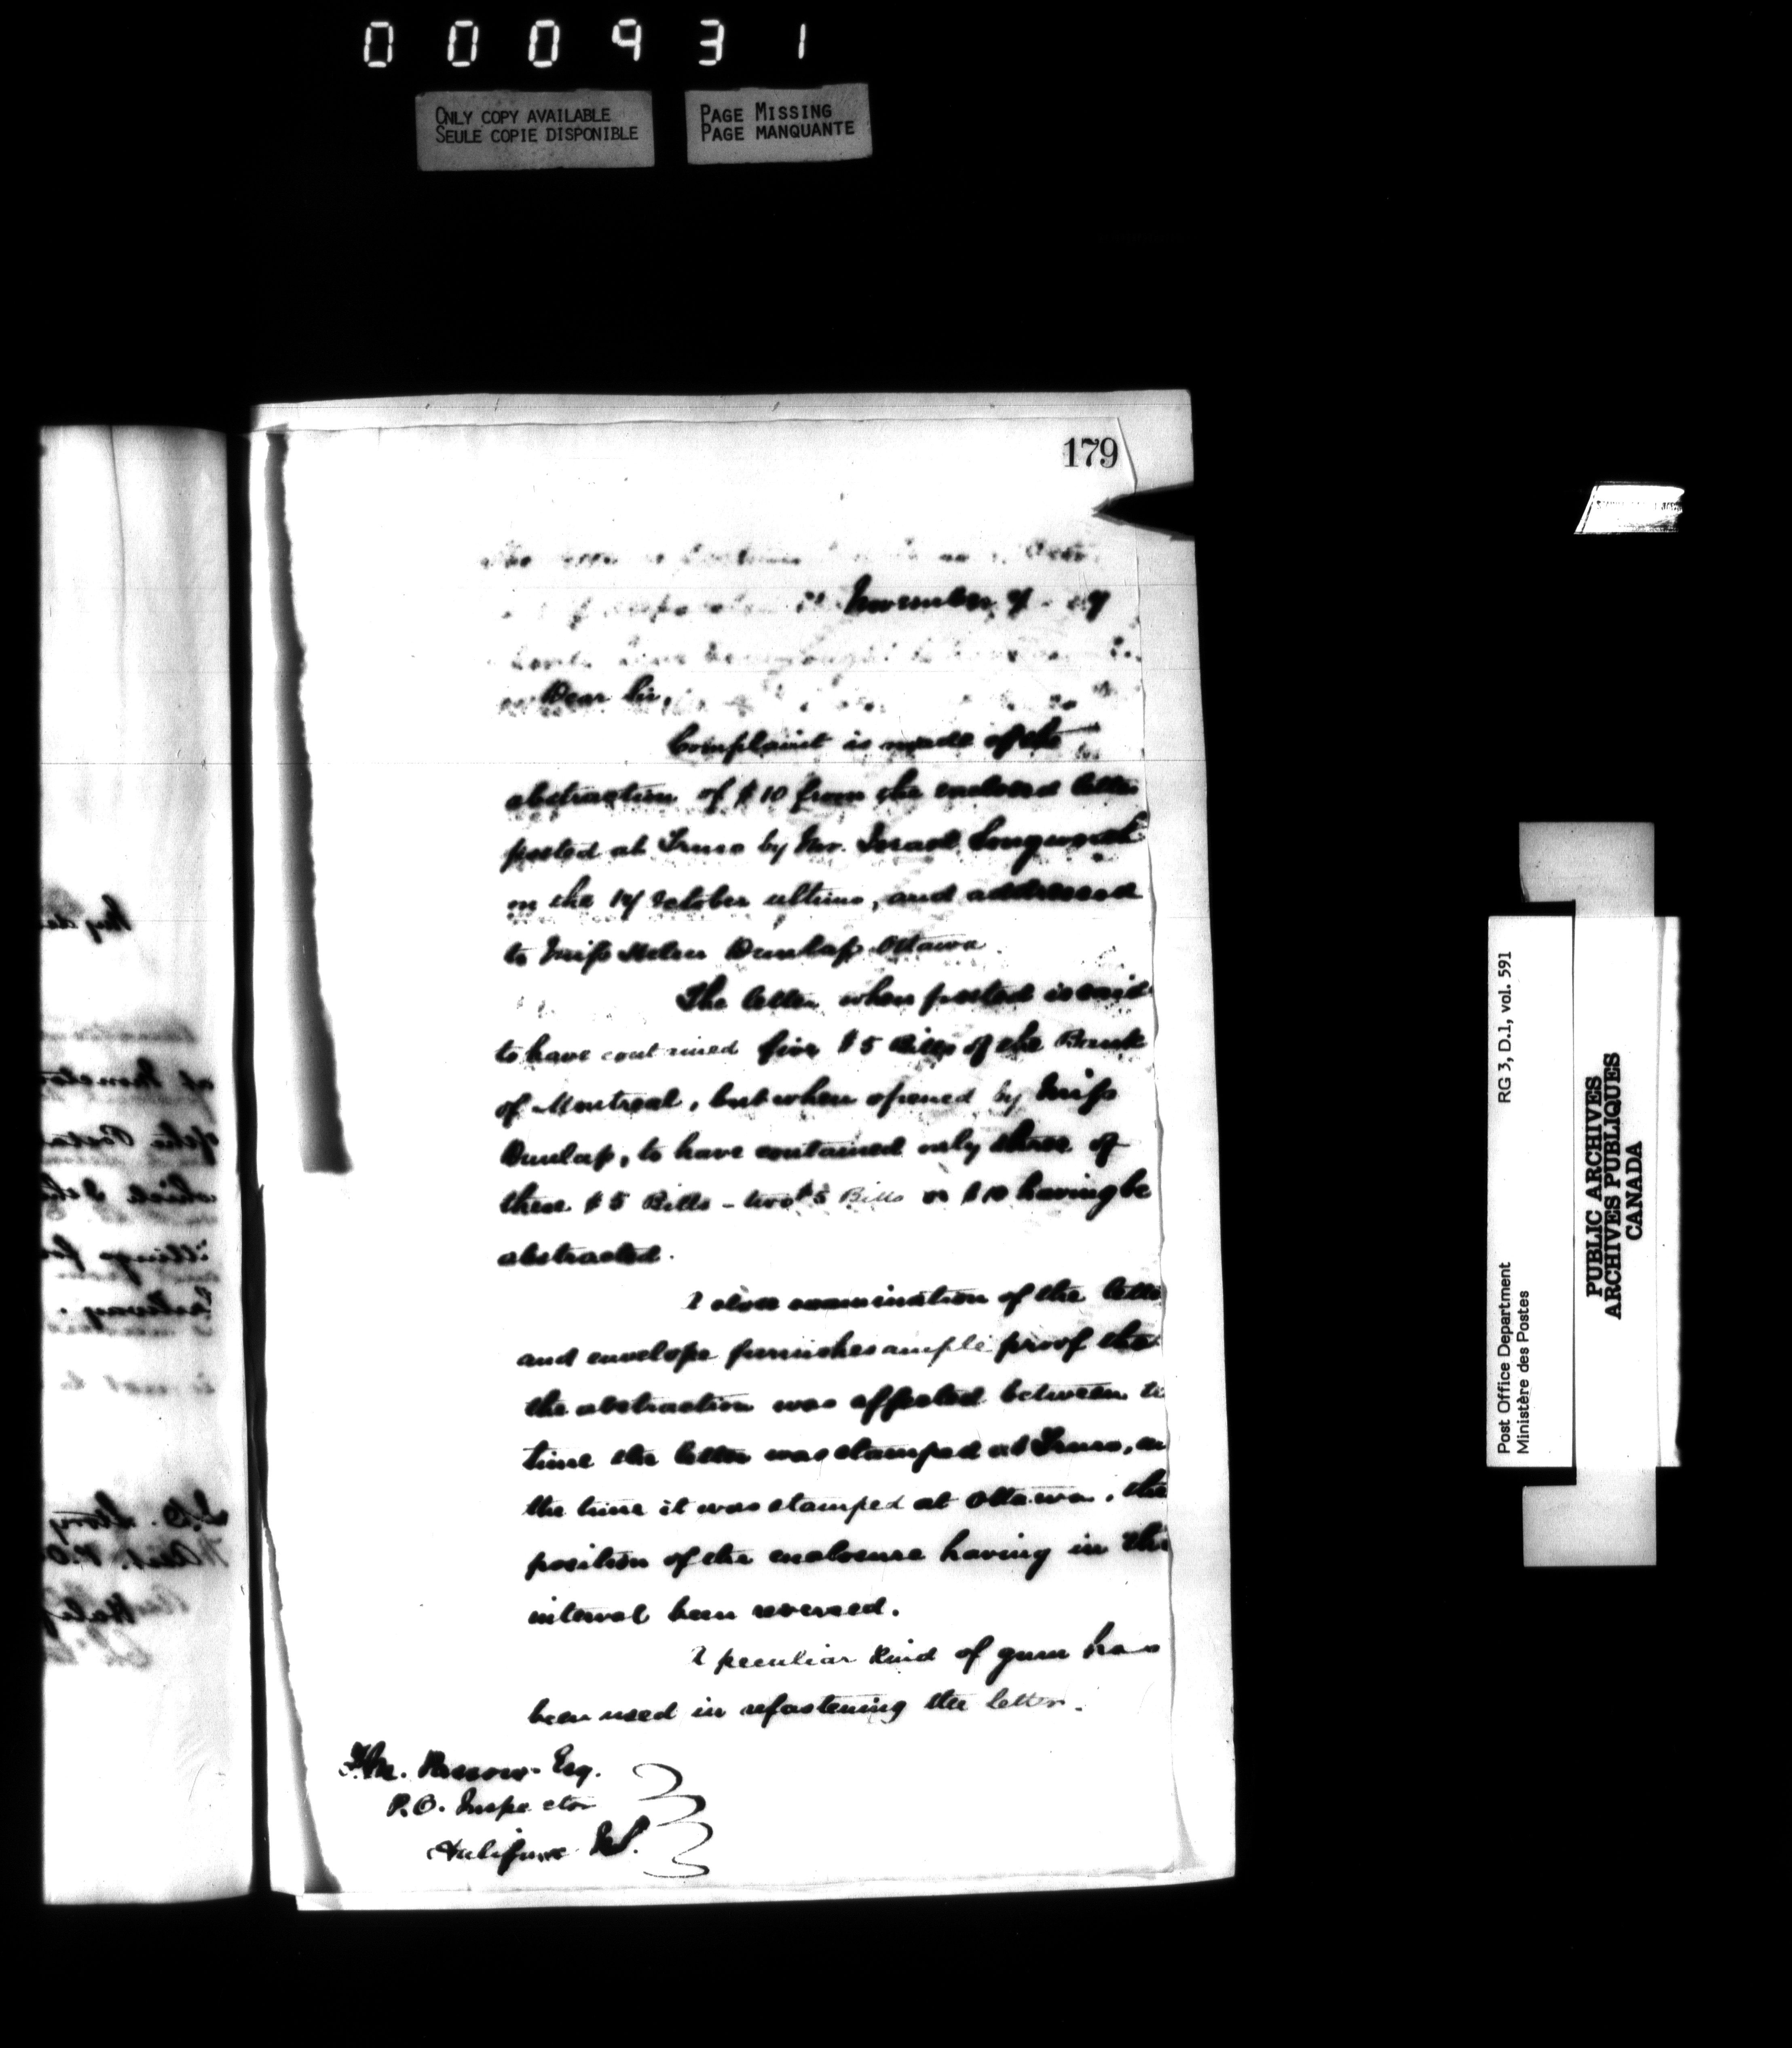 000931
ONLY COPY AVAILABLE
SEULE COPIE DISPONIBLE
PAGE MISSING
PAGE MANQUANTE
179
November 9
Dear Sir,
Complaint is made of the
abstraction of $10 from the enclosed letter
posted at Truro by Mr. Israel Longworth
on the 17 October ultimo, and addressed
to Miss Helen Dunlap Ottawa
The letter when posted is said
to have contained five $5 Bills of the Bank
of Montreal, but when opened by Miss
Dunlap, to have contained only three of
these $5 Bills - two $5 Bills or $10 having be
abstracted.
A close examination of the lette
and envelope furnishes ample proof that
the abstraction was effected between t
time the letter was stamped at Truro, an
the time it was stamped at Ottawa, the
position of the enclosure having in the
interval been reversed.
A peculiar kind of gum has
been used in refastening the letter.
Esq.
P.O. Inspector
Halifax N.S.
My de
which
S.D. Story
Halif
RG 3, D.1, vol. 591
Post Office Department
Ministère des Postes
PUBLIC ARCHIVES
ARCHIVES PUBLIQUES
CANADA